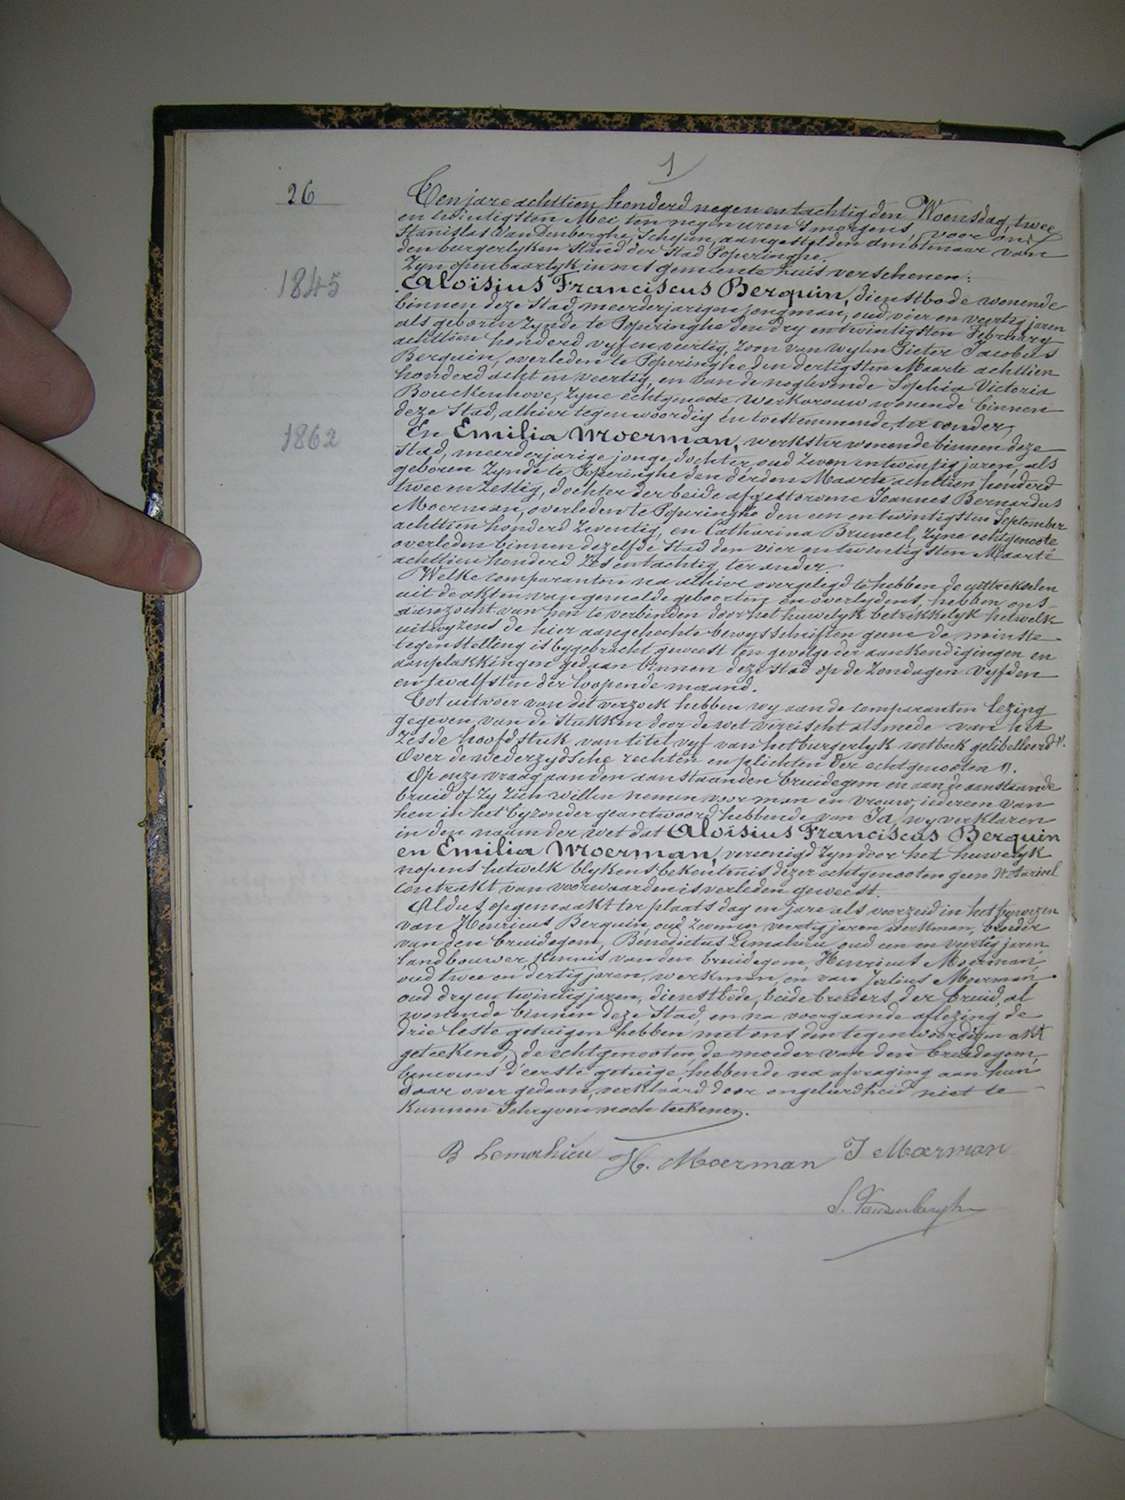 1
26
Ten jare achttien honderd negen en tachtig den Woensdag, twee
en twintigsten Mei, ten negen uren 's morgens, voor ons
Stanislas VanDenberghe, Schepen, aangestelden ambtenaar van
den burgerlyken stand der Stad Poperinghe.
Zyn openbaarlyk in het gemeente huis verschenen:
1845
Aloïsius Franciscus Berquin, dienstbode wonende
binnen deze stad, meerderjarigen jongman, oud vier en veertig jaren
als geboren zynde te Poperinghe den dry en twintigsten February
achttien honderd vyf en veertig, zoon van wylen Pieter Jacobus
Berquin, overleden te Poperinghe den dertigsten Maarte achttien
honderd acht en veertig, en van de noglevende Sophia Victoria
Bouckenhove, zyne echtgenote werkvrouw wonende binnen
deze Stad, alhier tegenwoordig en toestemmende, ter eender,
1862
En Emilia Moerman, werkster wonende binnen deze
Stad, meerderjarige jonge dochter, oud zeven en twintig jaren, als
geboren zynde te Poperinghe den derden Maarte achttien honderd
twee en zestig, dochter der beide afgestorvene Joannes Bernardus
Moerman, overleden te Poperinghe den een en twintigsten September
achttien honderd zeventig, en Catharina Bruneel, zyne echtgenoote
overleden binnen dezelfde Stad den vier en twintigsten Maarte
achttien honderd zes en tachtig, ter ander.
Welke comparanten na alhier overgelegd te hebben de uittrekselen
uit de akten van gemelde geboorten en overlydens, hebben ons
aanzocht van hen te verbinden door het huwelyk betrekkelyk hetwelk
uitwyzens de hier aangehechte bewysschriften geene de minste
tegenstelling is bygebracht geweest ten gevolge der aankondigingen en
aanplakkingen gedaan binnen deze stad op de Zondagen vyfden
en twalfsten der loopende maand.
Tot uitvoer van dit verzoek hebben wy aan de comparanten lezing
gegeven van de stukken door de wet vereischt alsmede van het
zesde hoofdstuk van titel vyf van het burgerlyk wetboek gelibelleerd
Over de wederzydsche rechten en plichten der echtgenooten.
Op onze vraag aan den aanstaanden bruidegom en aan de aanstaande
bruid of zy zich willen nemen voor man en vrouw, iedereen van
hen in het byzonder geantwoord hebbende van Ja, wy verklaren
in den naam der wet dat Aloïsius Franciscus Berquin
en Emilia Moerman, vereenigd zyn door het huwelyk
nopens hetwelk blykens bekentenis dezer echtgenooten geen Notarieel
contrakt van voorwaarden is verleden geweest.
Aldus opgemaakt ter plaats dag en jare als voorzeid in het bywezen
van Henricus Berquin, oud en veertig jaren werkman, broeder
van den bruidegom, Benedictus Lemahieu oud een en veertig jaren,
landbouwer kennis van den bruidegom, Henricus Moerman,
oud twee en dertig jaren, werkman, en van Julius Moerman
oud dry en twintig jaren, dienstbode, beide broeders der bruid, al
wonende binnen deze Stad, en na voorgaande aflezing de
drie leste getuigen hebben met ons den tegenwoordigen akt
geteekend, de echtgenooten, de moeder van den bruidegom,
benevens d'eerste getuige, hebbende na afvraging aan hun
daar over gedaan, verklaard door ongeleerdheid niet te
kunnen Schryven noch teekenen.
B Lemahieu H. Moerman J Moerman
S. Vandenberghe